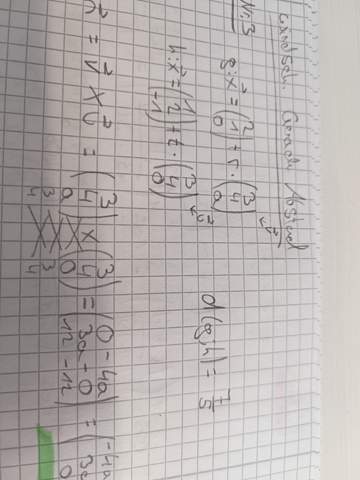 Gerade Abstand
Nr. 3
g: x⃗ = (2 1 0) + r · (3 4 a) ← v⃗
h: x⃗ = (1 2 -1) + t · (3 4 0) ← u⃗
d(g;h) = 7/5
n⃗ = v⃗ × u⃗ = (3 4 a) × (3 4 0) = (0-4a 3a-0 12-12) = (-4a 3a 0
3 3
4 4